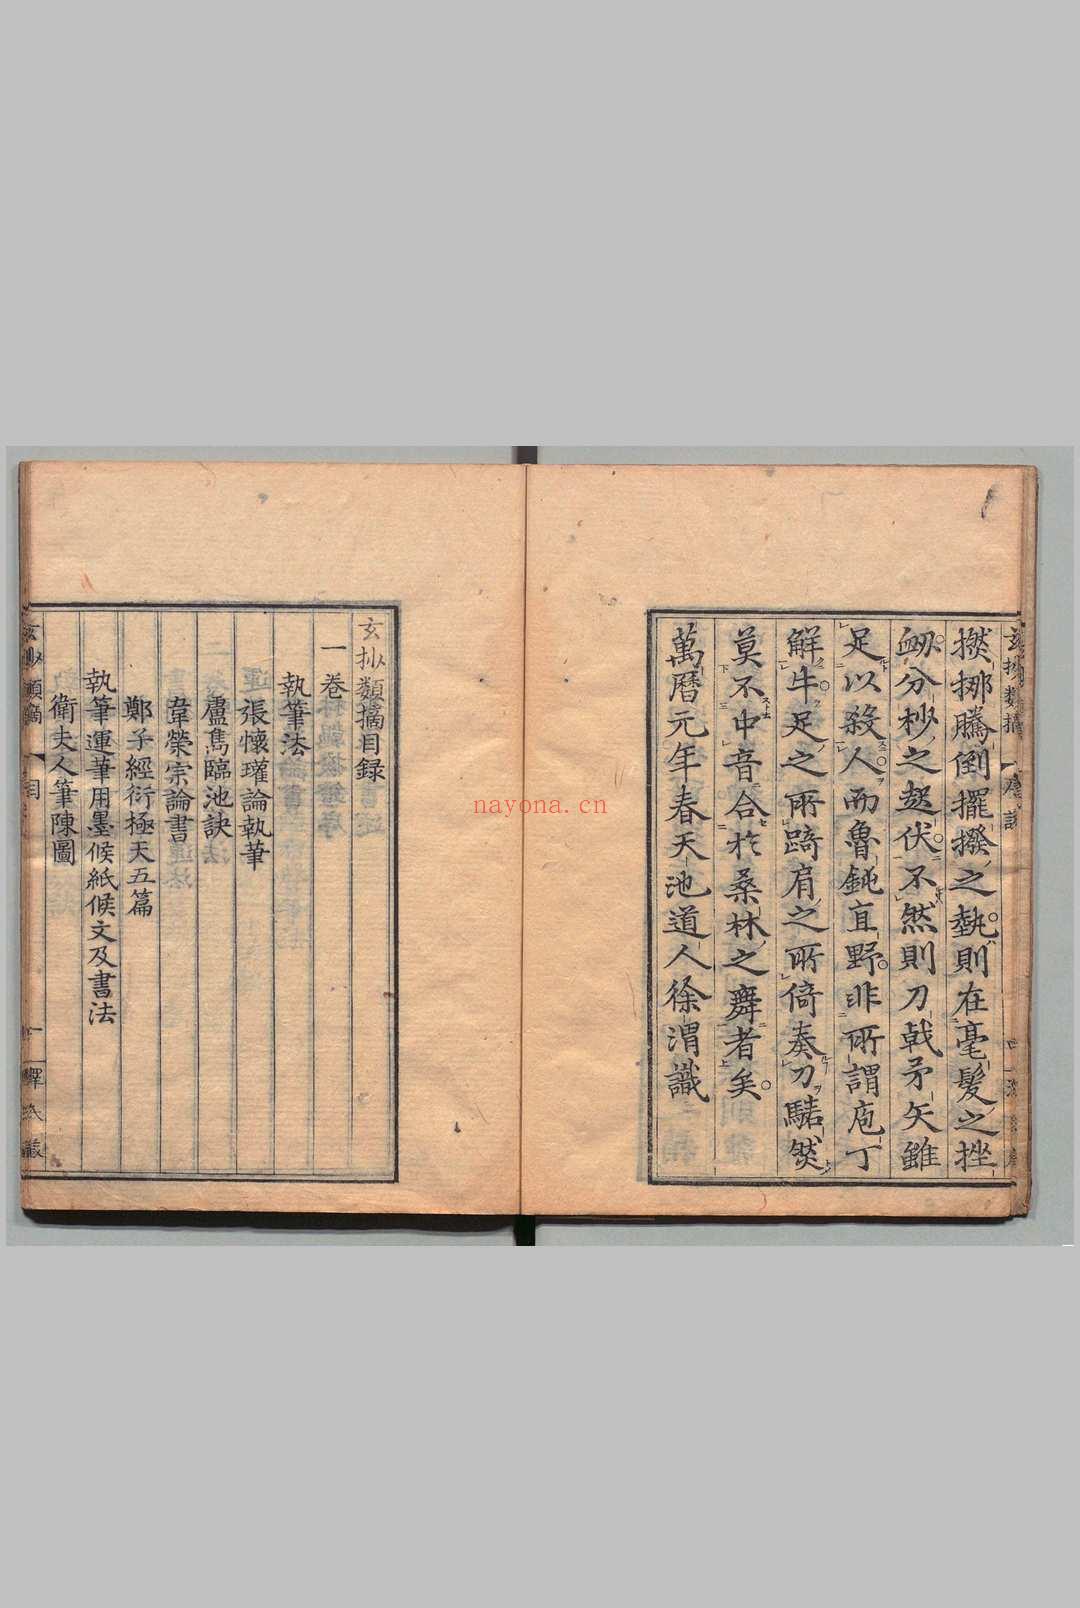 撚挪騰倒擺撥之埶則在毫髮之挫
衂分杪之起伏不然則刀戟矛矢雖
足以殺人而魯鈍直野非所謂庖丁
解牛足之所踦肩之所倚奏刀騞然
莫不中音合於桑林之舞者矣
萬曆元年春天池道人徐渭識
玄抄類摘目録
一卷
執筆法
張懷瓘論執筆
盧雋臨池訣
韋榮宗論書
鄭子經衍極天五篇
執筆運筆用墨候紙候文及書法
衛夫人筆陳圖
玄抄類摘
目
nayona.cn